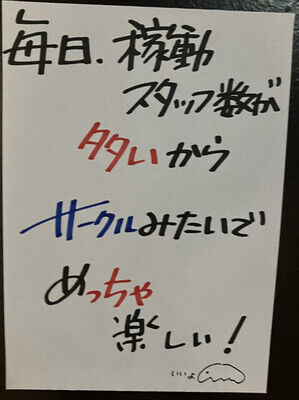 毎日、稼働
スタッフ数が
多いから
サークルみたいで
めっちゃ
楽しい!
いいよ